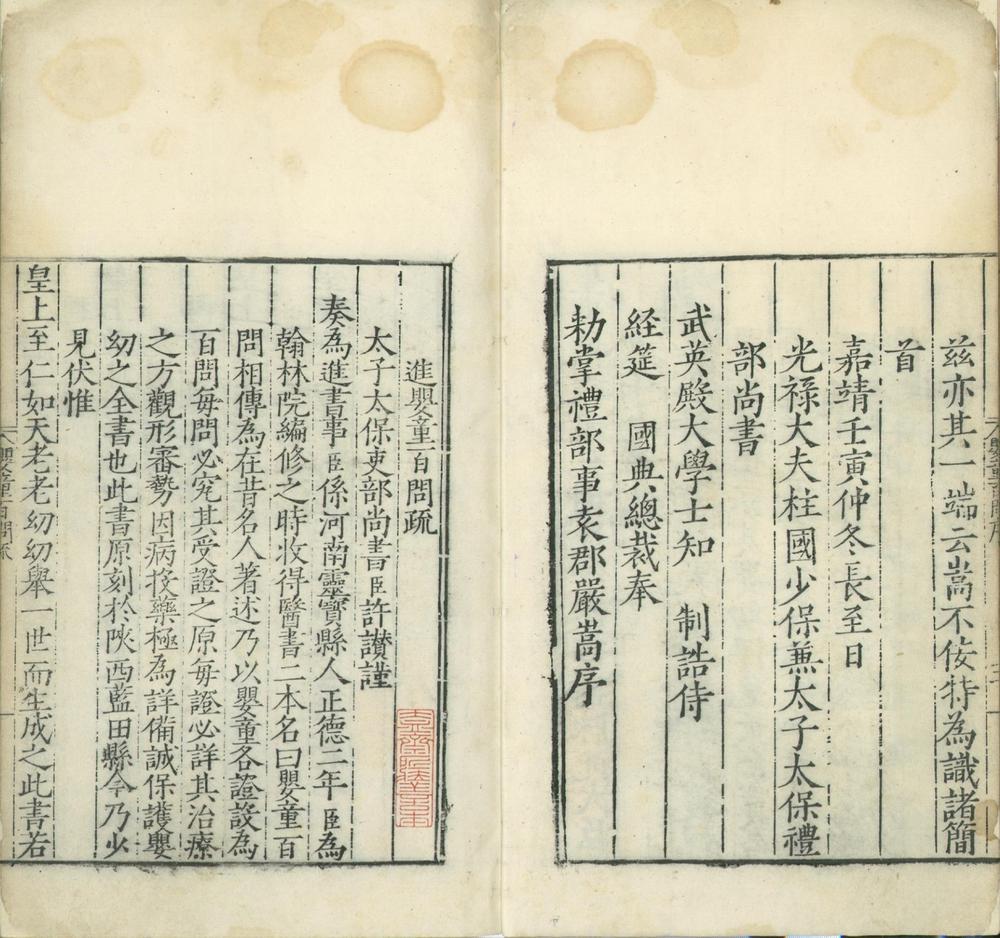 茲亦其一端云嵩不佞特為識諸簡
首
嘉靖壬寅仲冬長至日
光祿大夫柱國少保兼太子太保禮
部尚書
武英殿大學士知　制誥侍
経筵　國典總裁奉
勑掌禮部事袁郡嚴嵩序
進嬰童百問疏
太子太保吏部尚書臣許讃謹
奏為進書事臣係河南靈寳縣人正德二年臣為
翰林院編修之時收得醫書二本名曰嬰童百
問相傳為在昔名人著述乃以嬰童各證設為
百問每問必究其受證之原每證必詳其治療
之方觀形審勢因病投藥極為詳備誠保護嬰
幼之全書也此書原刻於陝西藍田縣今乃少
見伏惟
皇上至仁如天老老幼幼舉一世而生成之此書若